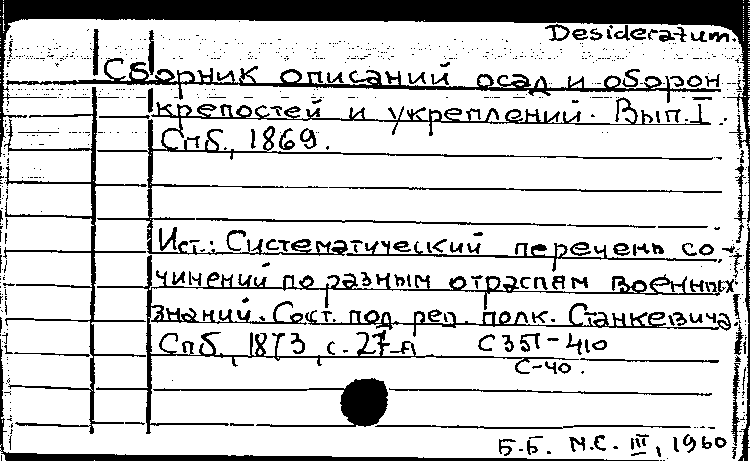 Desideratum.
Сборник описаний осад и оборон
крепостей и укреплений. Вып. I.
Спб., 1869.
Ист.: Систематический перечень со-
чинений по разным отраслям военных
знаний. Сост. под. ред. полк. Станкевича
Спб., 1873, с. 27-я С 351-410
С-40.
Б.Б. М.С. III, 1960